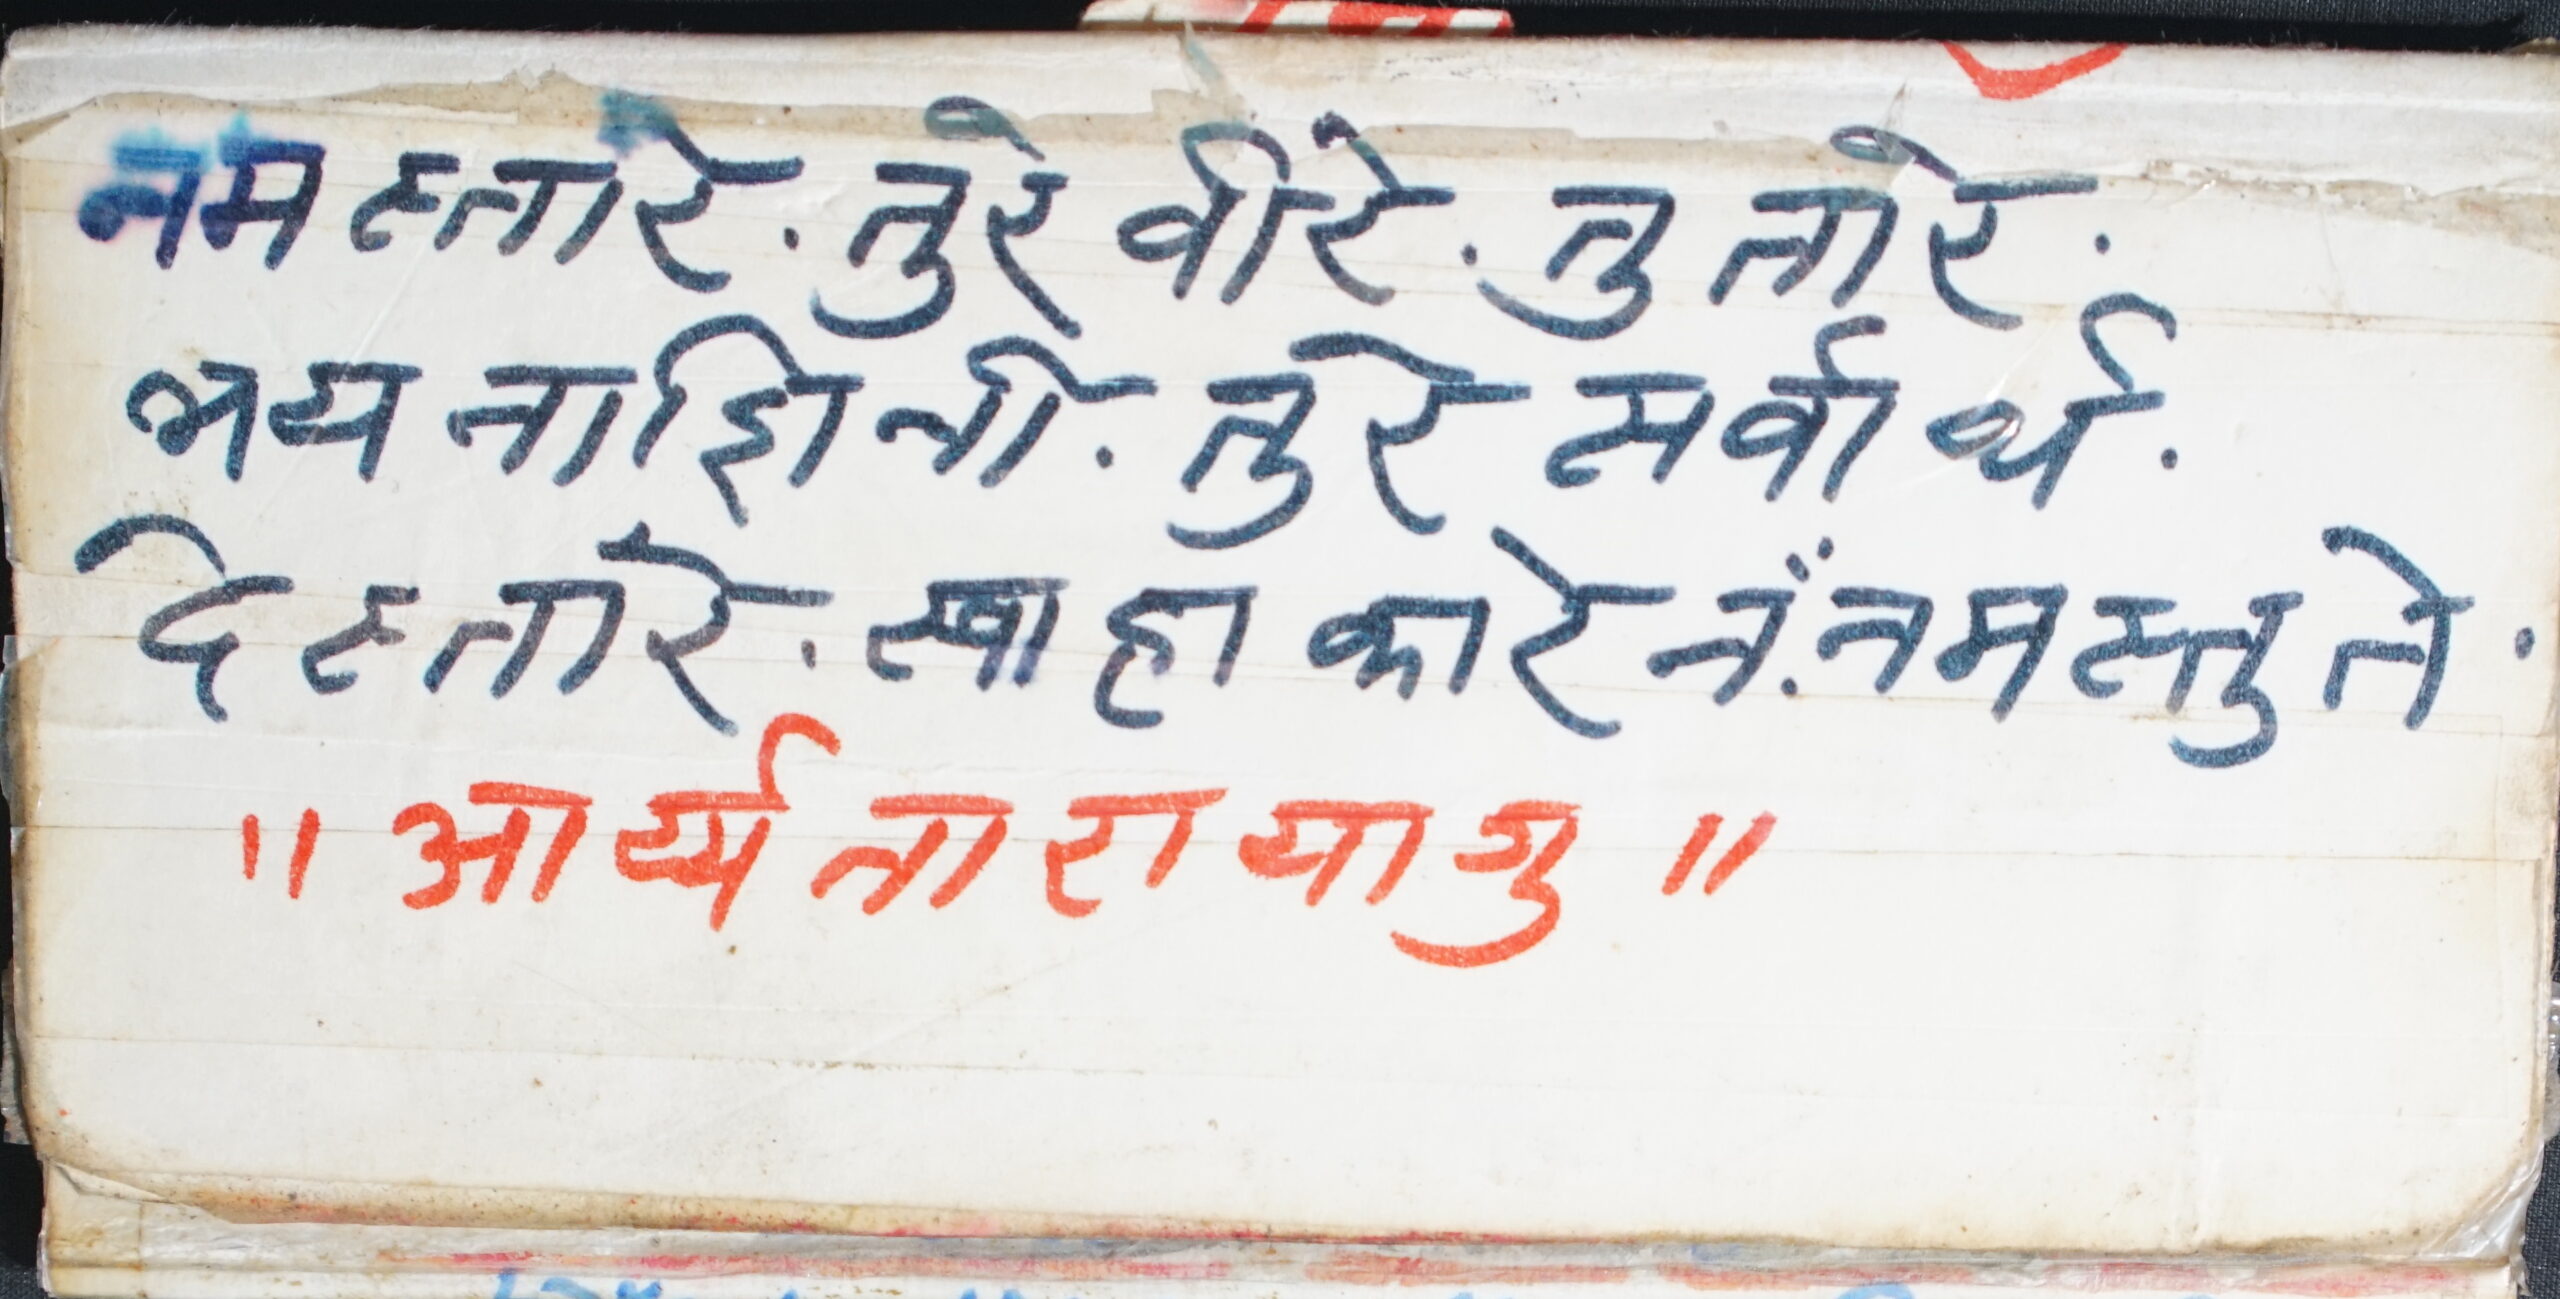 नमस्तारे. तुरे वीरे. तु तारे.
भय नाशिनी. तुरे सर्वार्थ.
देस्तारे. स्वाहा कारे नं. नमस्तुते.
॥ आर्य्य तारा यागु ॥